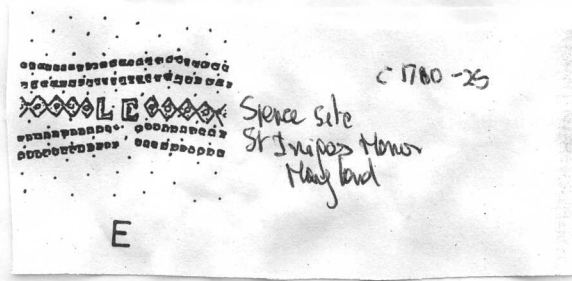 c 1780-25
LE
Spence Site
St Inigoes Manor
Maryland
E